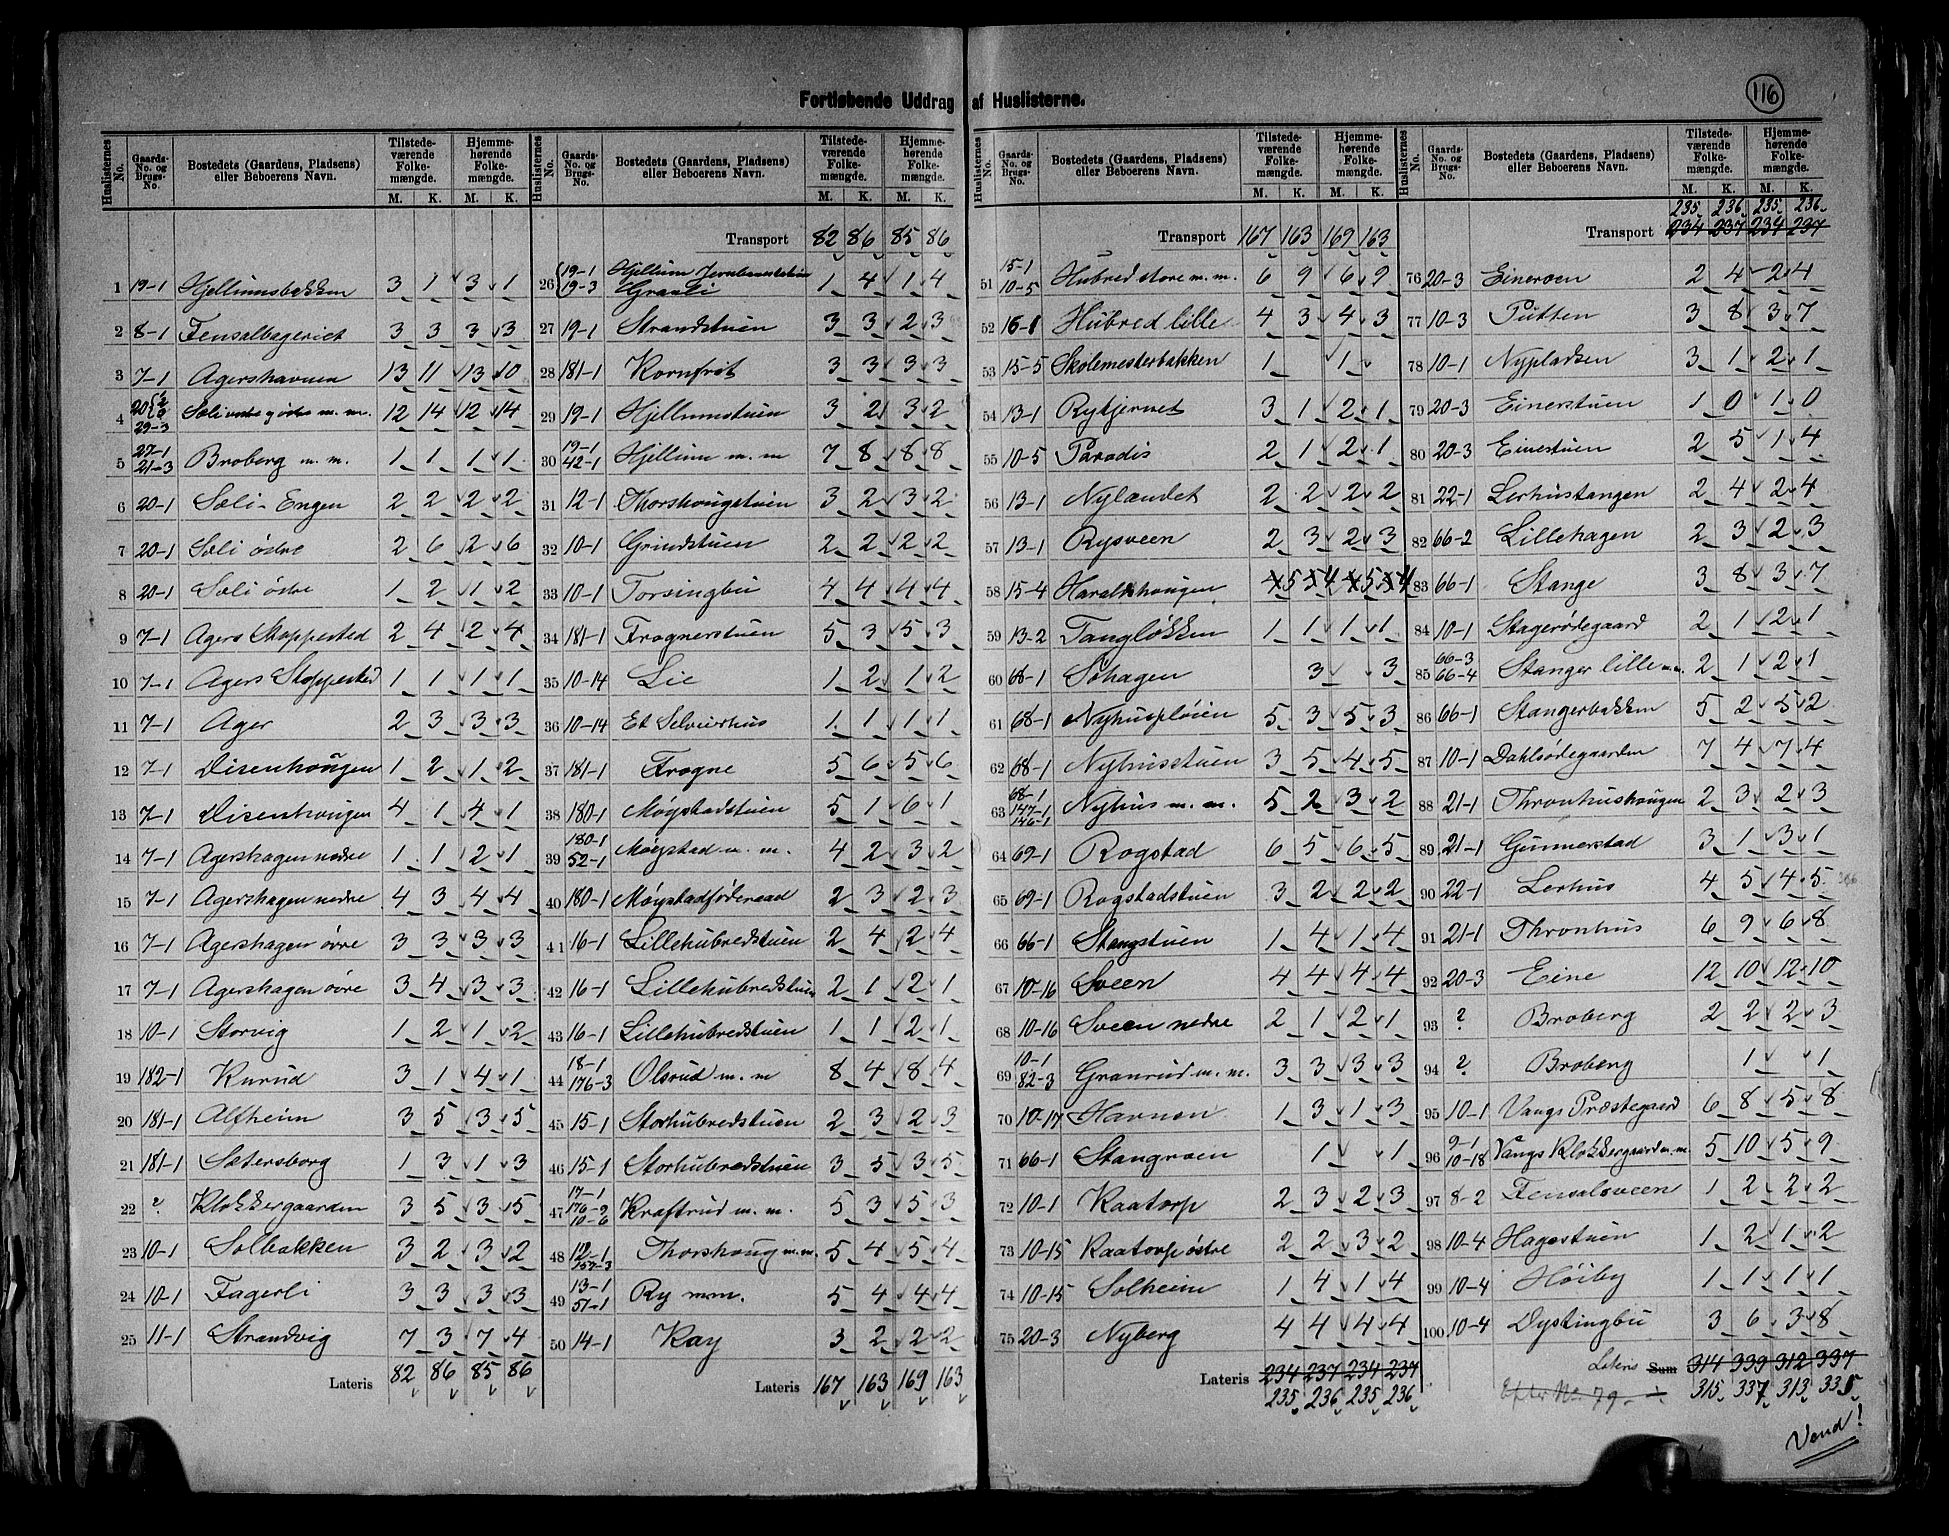 116
Fortløbende Uddrag af Huslisterne.
Huslisternes No. Gaards-No. og Brugs-No. Bostedets (Gaardens, Pladsens) eller Beboerens Navn. Tilstedeværende Folkemængde. M. K. Hjemmehørende Folkemængde. M. K.
1 19-1 Hjellumsbakken 3 1 3 1
2 8-1 Fensalbageriet 3 3 3 3
3 7-1 Agershavnen 13 11 13 10
4 29-3 Sæli vestre og østre m. m. 12 14 12 14
5 27-1 21-3 Broberg m. m. 1 1 1 1
6 20-1 Sæli-Engen 2 2 2 2
7 20-1 Sæli østre 2 6 2 6
8 20-1 Sæli østre 1 2 1 2
9 7-1 Agers Stoppested 2 4 2 4
10 7-1 Agers Stoppested 1 1 1 1
11 7-1 Ager 2 3 3 3
12 7-1 Disenhougen 1 2 1 2
13 7-1 Disenhougen 4 1 4 1
14 7-1 Agershagen nedre 1 1 2 1
15 7-1 Agershagen nedre 4 3 4 4
16 7-1 Agershagen øvre 3 3 3 3
17 7-1 Agershagen øvre 3 4 3 3
18 10-1 Storvig 1 2 1 2
19 182-1 Kurud 3 1 4 1
20 181-1 Alfheim 3 5 3 5
21 181-1 Sætersborg 1 3 1 3
22 ? Klokkergaarden 3 5 3 5
23 10-1 Solbakken 3 2 3 2
24 10-1 Fagerli 3 3 3 3
25 11-1 Strandvig 7 3 7 4
Lateris 82 86 85 86
Huslisternes No. Gaards-No. og Brugs-No. Bostedets (Gaardens, Pladsens) eller Beboerens Navn. Tilstedeværende Folkemængde. M. K. Hjemmehørende Folkemængde. M. K.
Transport 82 86 85 86
26 19-1 19-3 Hjellum Jernbanestation Graali 1 4 1 4
27 19-1 Strandstuen 3 3 2 3
28 181-1 Kornfrit 3 3 3 3
29 19-1 Hjellumstuen 3 2 3 2
30 19-1 42-1 Hjellum m. m 7 8 8 8
31 12-1 Thorshougstuen 3 2 3 2
32 10-1 Grindstuen 2 2 2 2
33 10-1 Torsingbu 4 4 4 4
34 181-1 Frognerstuen 5 3 5 3
35 10-14 Lie 1 2 1 2
36 10-14 Et Selveierhus 1 1 1 1
37 181-1 Frogne 5 6 5 6
38 180-1 Møystadstuen 5 1 6 1
39 180-1 52-1 Møystad m. m. 4 2 3 2
40 180-1 Møystadføderaad 2 3 2 3
41 16-1 Lillehubredstuen 2 4 2 4
42 16-1 Lillehubredstuen 2 1 2 1
43 16-1 Lillehubredstuen 1 1 2 1
44 18-1 176-3 Olsrud m. m 8 4 8 4
45 15-1 Storhubredstuen 2 3 2 3
46 15-1 Storhubredstuen 3 5 3 5
47 17-1 176-2 10-6 Kraftrud m. m. 5 3 5 3
48 12-1 Thorshoug m. m. 5 4 5 4
49 13-1 51-1 Ry m m. 5 4 4 4
50 14-1 Kay 3 2 2 2
Lateris 167 163 169 163
Huslisternes No. Gaards-No. og Brugs-No. Bostedets (Gaardens, Pladsens) eller Beboerens Navn. Tilstedeværende Folkemængde. M. K. Hjemmehørende Folkemængde. M. K.
Transport 167 163 169 163
51 15-1 10-5 Hubred store m. m. 6 9 6 9
52 16-1 Hubred lille 4 3 4 3
53 15-5 Skolemesterbakken 1 1
54 13-1 Rytjernet 3 1 2 1
55 10-5 Paradis 2 1 2 1
56 13-1 Nylændet 2 2 2 2
57 13-1 Rysveen 2 3 2 3
58 15-4 Haralhhougen 5 4 5 4
59 13-2 Tangløkken 1 1 1 1
60 68-1 Sohagen 3 3
61 68-1 Nyhuspløien 5 3 5 3
62 68-1 Nyhusstuen 3 5 4 5
63 68-1 147-1 146-1 Nyhus m. m. 5 2 3 2
64 69-1 Rogstad 6 5 6 5
65 69-1 Rogstadstuen 3 2 2 2
66 66-1 Stangstuen 1 4 1 4
67 10-16 Sveen 4 4 4 4
68 10-16 Sveen nedre 2 1 2 1
69 10-1 82-3 Granrud m. m. 3 3 3 3
70 10-17 Havnen 1 3 1 3
71 66-1 Stangroen 1 1
72 10-1 Kaatorp 2 3 2 3
73 10-15 Kaatorp østre 2 2 3 2
74 10-15 Solheim 1 4 1 4
75 20-3 Nyberg 4 4 4 4
Lateris 234 237 234 237
235 236 235 236
Huslisternes No. Gaards-No. og Brugs-No. Bostedets (Gaardens, Pladsens) eller Beboerens Navn. Tilstedeværende Folkemængde. M. K. Hjemmehørende Folkemængde. M. K.
235 236 235 236
Transport 234 237 234 237
76 20-3 Eineroen 2 4 2 4
77 10-3 Putten 3 8 3 7
78 10-1 Nypladsen 3 1 2 1
79 20-3 Einerstuen 1 0 1 0
80 20-3 Einestuen 2 5 1 4
81 22-1 Lerhustangen 2 4 2 4
82 66-2 Lillehagen 2 3 2 3
83 66-1 Stange 3 8 3 7
84 10-1 Stagerødegaard 2 1 2 1
85 66-3 66-4 Stanger lille m. 2 1 2 1
86 66-1 Stangerbakken 5 2 5 2
87 10-1 Dahlsødegaarden 7 4 7 4
88 21-1 Thronhushougen 2 3 2 3
89 21-1 Gunnerstad 3 1 3 1
90 22-1 Lerhus 4 5 4 5
91 21-1 Thronhus 6 9 6 8
92 20-3 Eine 12 10 12 10
93 ? Broberg 2 2 2 3
94 ? Broberg 1 1
95 10-1 Vangs Præstegaard 6 8 5 8
96 9-1 10-18 Vangs Klokkergaard m. m. 5 10 5 9
97 8-2 Fensalsveen 1 2 2 2
98 10-4 Hagestuen 1 2 1 2
99 10-4 Høiby 1 1 1 1
100 10-4 Dystingbu 3 6 3 8
Lateris Sum 314 339 312 337
Efter No. 79. 315 337 313 335
Vend!